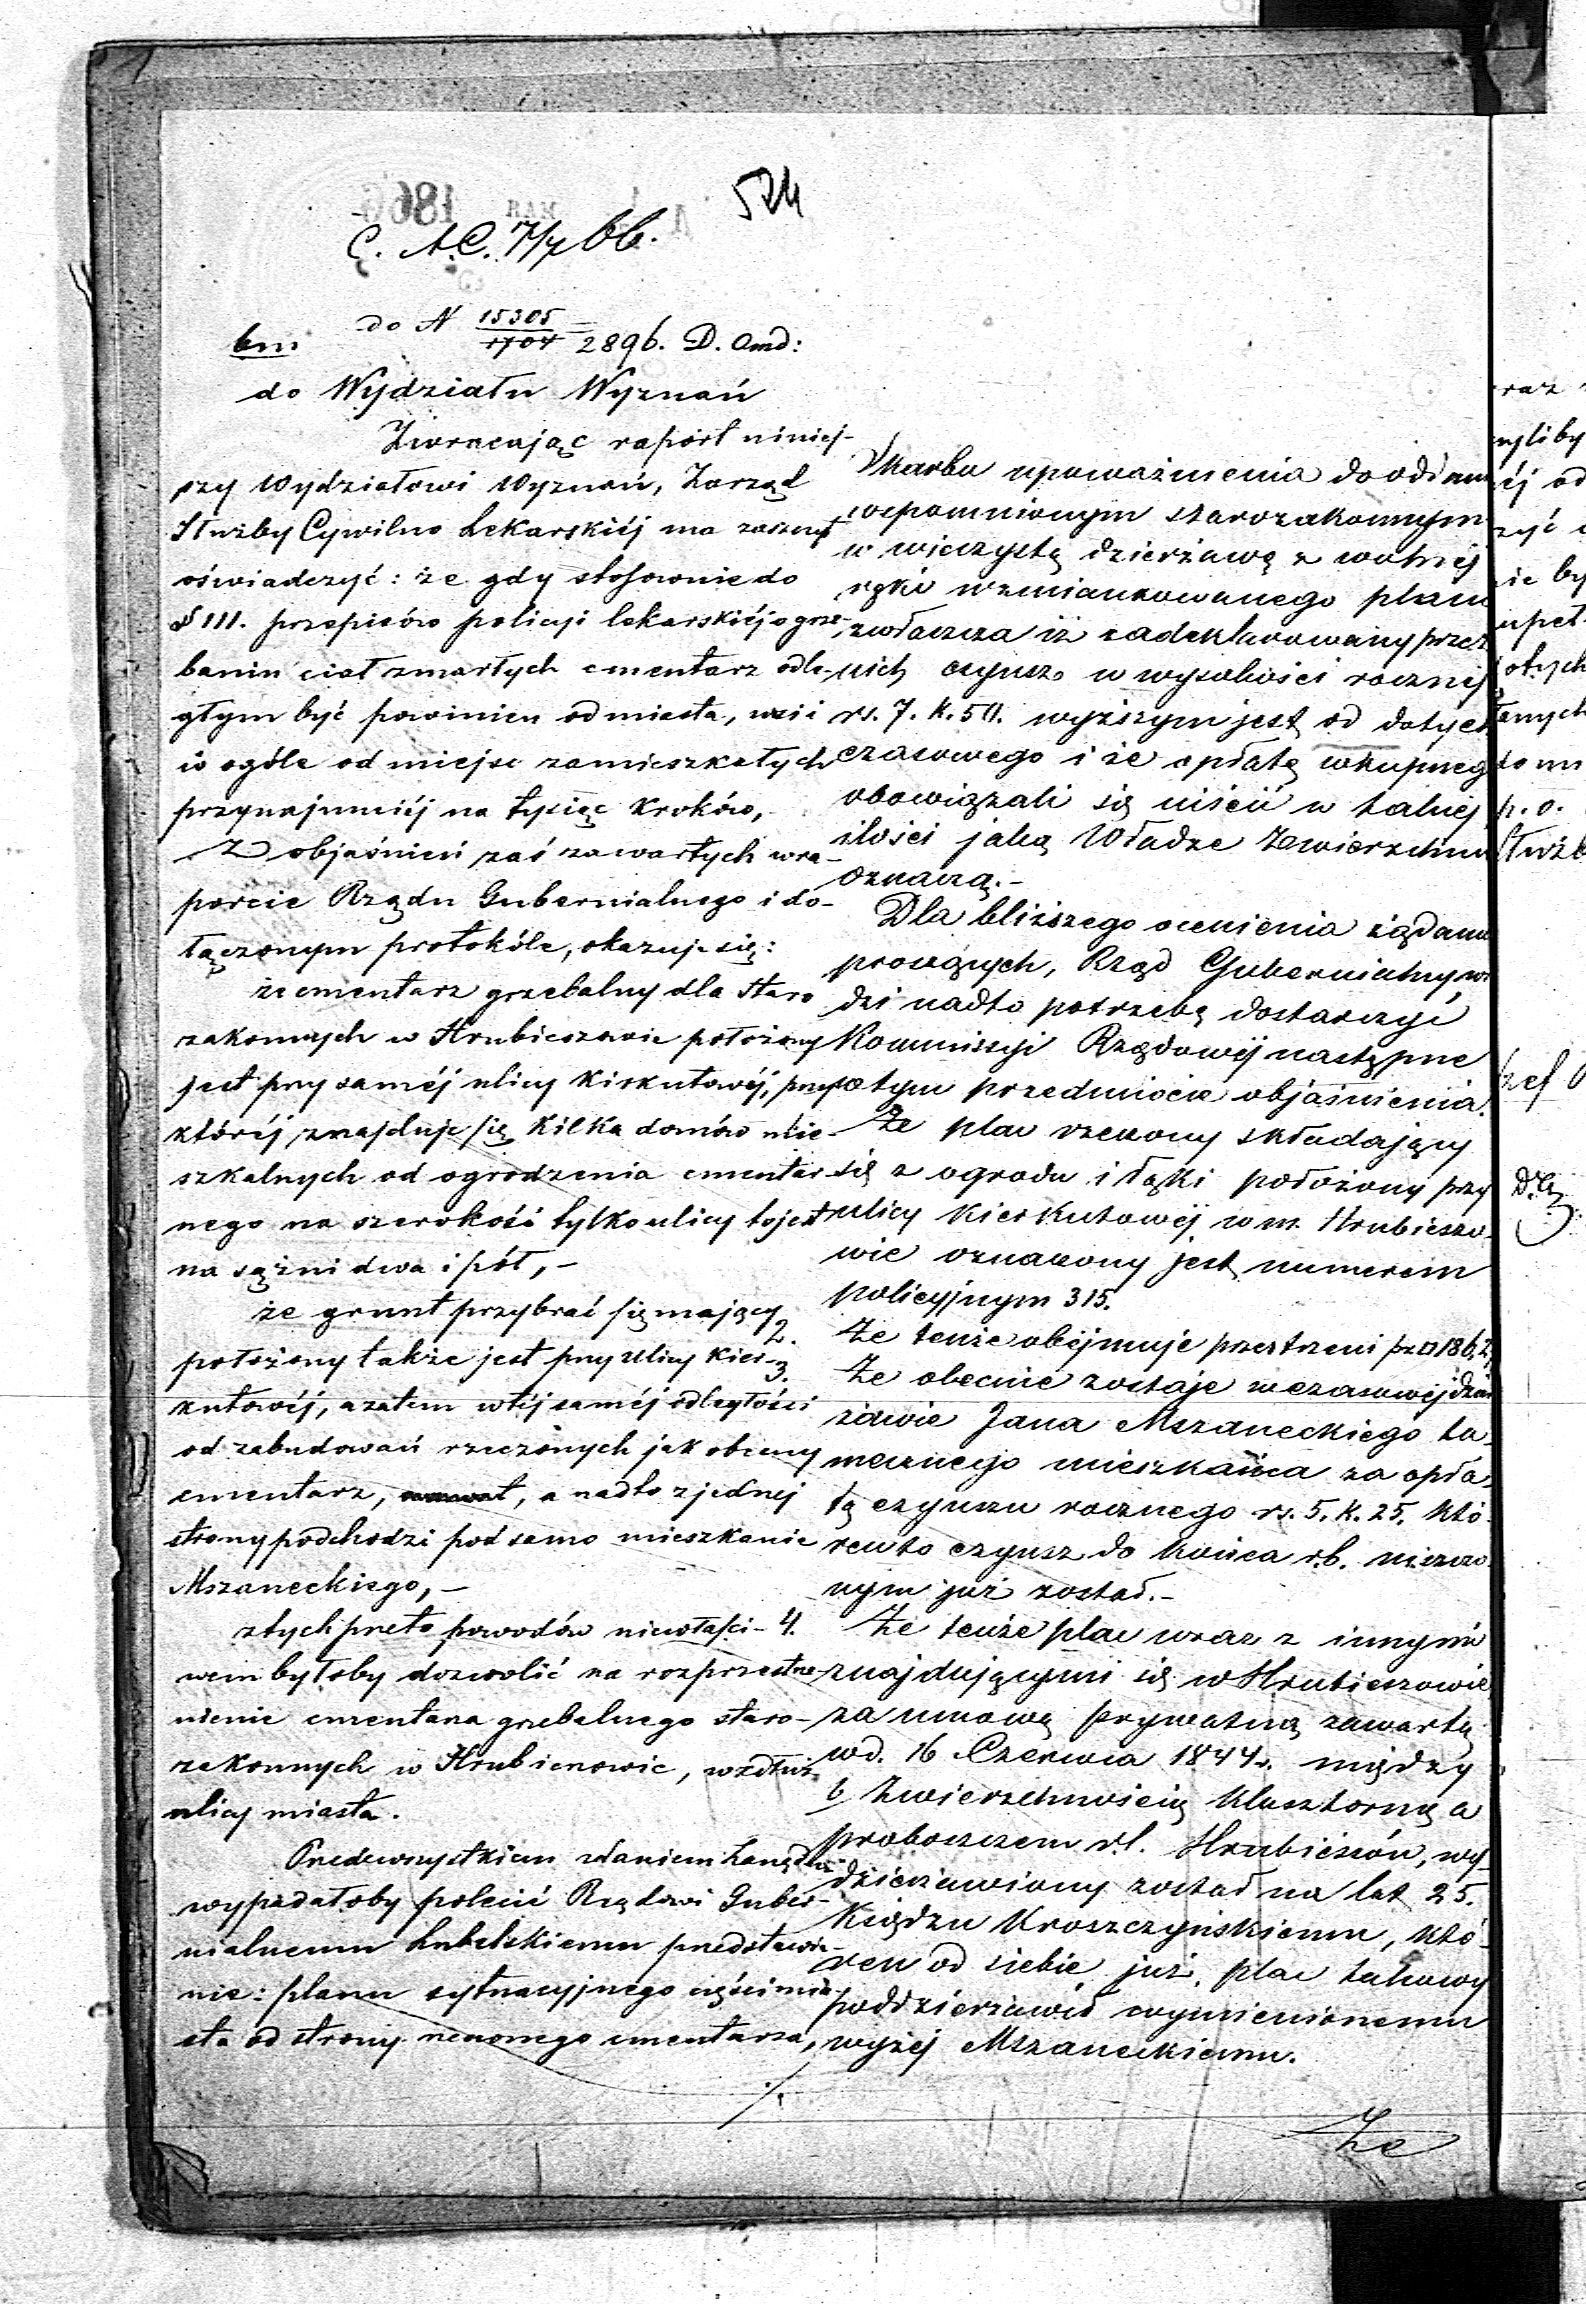 524
C. A.C. 7/7 66.
do N 15305/1704 = 2896. D. Omd:
bm
do Wydziału Wyznań
Zwracając raport niniej-
szy Wydziałowi Wyznań, Zarząd
Służby Cywilno Lekarskiéj ma zaszczyt
oświadczyć: że gdy stosownie do
§ III. przepisów policyi lekarskiéj o grze-
baniu ciał zmarłych cmentarz odle-
głym być powinien od miasta, wsi i
w ogóle od miejsc zamieszkałych
przynajmniéj na tysiąc kroków,
Z objaśnień zaś zawartych w ra-
porcie Rządu Gubernialnego i do-
łączonym protokóle, okazuje się:
że cmentarz grzebalny dla staro
zakonnych w Hrubieszowie położony
jest przy saméj ulicy Kirkutowéj, przy
któréj znajduje się kilka domów mie-
szkalnych od ogrodzenia cmentar
nego na szerokość tylko ulicy to jest
na sążni dwa i pół, -
że grunt przybrać się mający
położony także jest przy ulicy Kier-
kutowéj, a zatem w téj saméj odległości
od zabudowań rzeczonych jak obecny
cmentarz, a nadto z jednej
strony podchodzi pod samo mieszkanie
Mszaneckiego, -
z tych przeto powodów niewłaści-
wem byłoby dozwolić na rozprzestrze-
nienie cmentarza grzebalnego staro-
zakonnych w Hrubieszowie, wzdłuż
ulicy miasta.
Przedewszystkiem zdaniem Zarządu
wypadałoby polecić Rządowi Guber-
nialnemu Lubelskiemu przedstawie-
nie: planu sytuacyjnego części mia-
sta od strony rzeczonego cmentarza,
./.
Skarbu upoważnienia do oddania
wspomnionym starozakonnym
w wieczystą dzierżawę z wolnéj
ręki wzmiankowanego placu
zwłaszcza iż zadeklarowany przez
nich czynsz w wysokości rocznéj
rs. 7. k. 50. wyższym jest od dotych
czasowego i że opłatę wkupnego
obowiązali się uiścić w takiéj
ilości jaką Władze Zwierzchnie
oznaczą. -
Dla bliższego ocenienia żądania
proszących, Rząd Gubernialny wi
dzi nadto potrzebę dostarczyć
Kommissyi Rządowéj następne
o tym przedmiocie objaśnienia.
Że plac rzeczony składający
się z ogrodu i łąki położony przy
ulicy Kierkutowéj w m. Hrubieszo-
wie oznaczony jest numerem
policyjnym 315.
2. Że tenże obejmuje przestrzeni pr □ 186,2,
3. Że obecnie zostaje w czasowéj dzier
żawie Jana Mszaneckiego ta-
mecznego mieszkańca za opła-
tą czynszu rocznego rs. 5. k. 25. któ-
rento czynsz do końca r.b. uiszczo-
nym już został. -
4. Że tenże plac wraz z innymi
znajdującymi się w Hrubieszowie
za umową prywatną zawartą
w d. 16 Czerwca 1844 r. między
b. Zwierzchnością Klasztorną a
proboszczem r.l. Hrubieszów, wy-
dzierżawiony został na lat 25.
Księdzu Kroszczyńskiemu, któ-
ren od siebie już plac takowy
poddzierżawił wymienionemu
wyżéj Mszaneckiemu.
Że